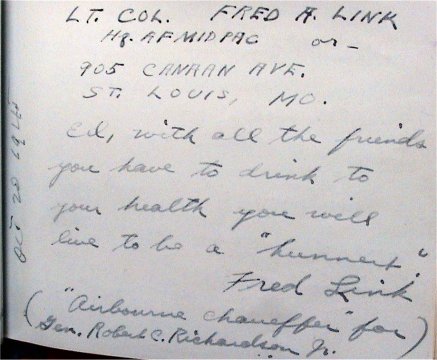 LT. COL. FRED A. LINK
HQ. AFMIDPAC or—
905 CANAAN AVE.
ST. LOUIS, MO.
Ed, with all the friends
you have to drink to
your health you will
live to be a "hunnert".
Fred Link
("Airbourne chaueffer" for
Gen. Robert C. Richardson Jr.)
OCT 20 1945